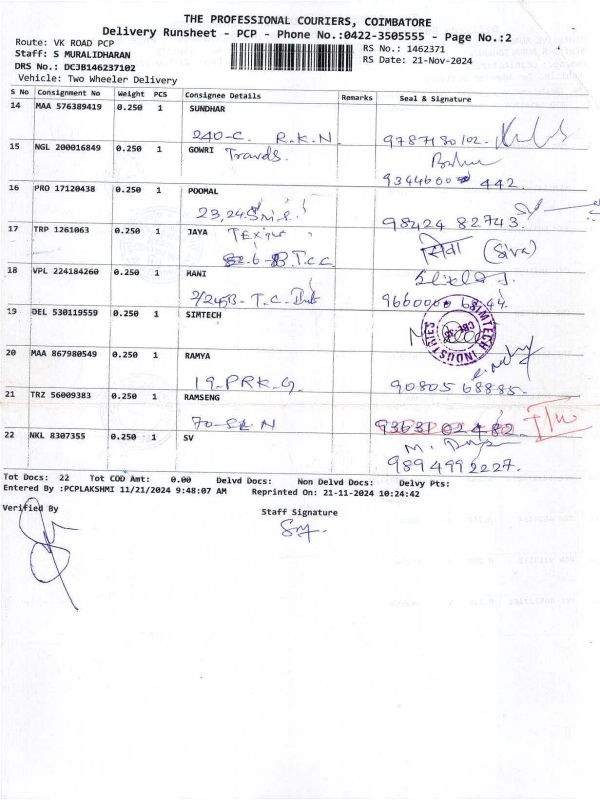 THE PROFESSIONAL COURIERS, COIMBATORE
Delivery Runsheet - PCP - Phone No.:0422-3505555 - Page No.:2
Route: VK ROAD PCP
RS No.: 1462371
Staff: S MURALIDHARAN
RS Date: 21-Nov-2024
DRS No.: DCJB146237102
Vehicle: Two Wheeler Delivery
S No Consignment No Weight PCS Consignee Details Remarks Seal & Signature
14 MAA 576389419 0.250 1 SUNDHAR
240-C. R.K.N 9787180102
15 NGL 200016849 0.250 1 GOWRI Travels.
442.
16 PRO 17120438 0.250 1 POOMAL
23,24 98424 82743.
17 TRP 1261063 0.250 1 JAYA सिवा (Siva)
B.T.C.C.
18 VPL 224184260 0.250 1 HANI
2/245B- T.C.
19 DEL 530119559 0.250 1 SIMTECH SIMTECH INDUSTRIES
20 MAA 867980549 0.250 1 RAMYA
19-PRK-G 90805 68885.
21 TRZ 56009383 0.250 1 RAMSENG
70-SLN 93631 02482
22 NKL 8307355 0.250 1 SV
9894992227.
Tot Docs: 22 Tot COD Amt: 0.00 Delvd Docs: Non Delvd Docs: Delvy Pts:
Entered By :PCPLAKSHMI 11/21/2024 9:48:07 AM Reprinted On: 21-11-2024 10:24:42
Verified By
Staff Signature